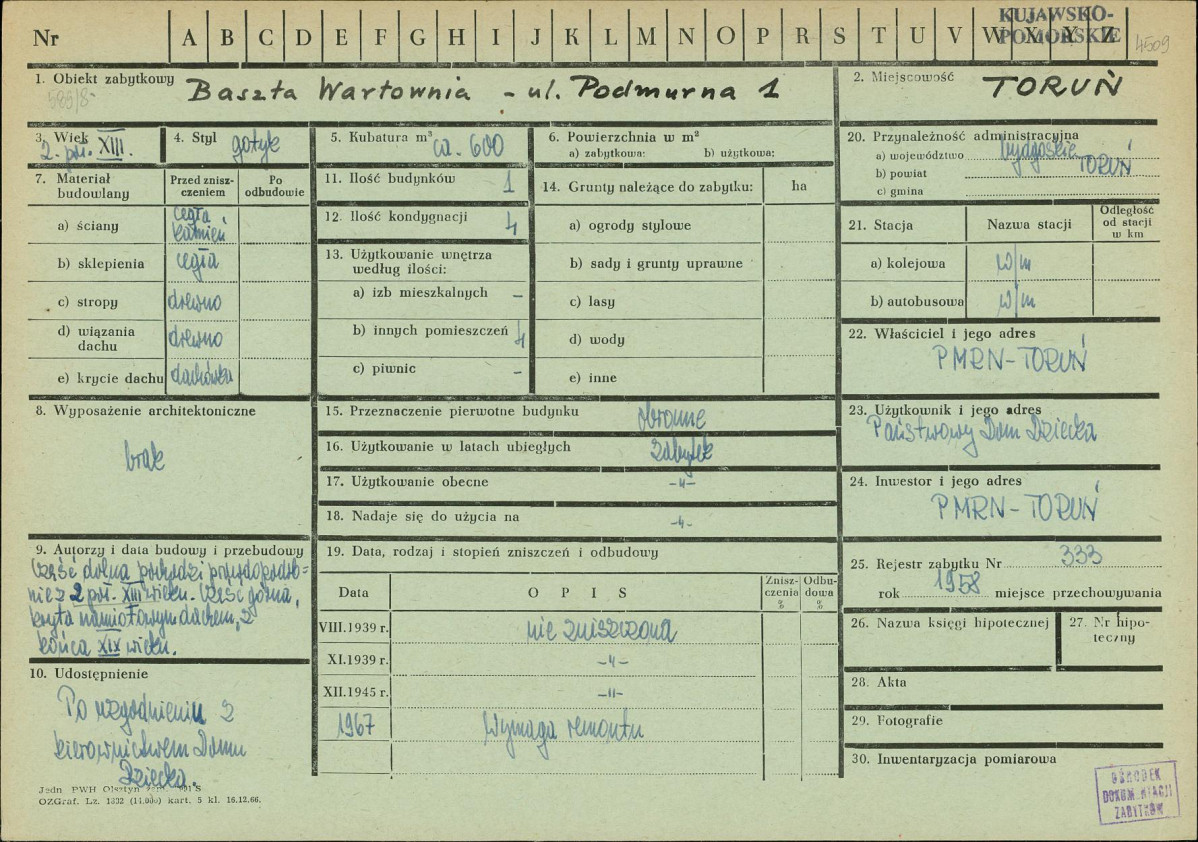 KUJAWSKO-
POMORSKIE
Nr A B C D E F G H I J K L M N O P R S T U V W X Y Z
4509
1. Obiekt zabytkowy
589/8
Baszta Wartownia - ul. Podmurna 1
2. Miejscowość
TORUŃ
3. Wiek
2. poł. XIII.
4. Styl gotyk
5. Kubatura m³
ca. 600
6. Powierzchnia w m²
a) zabytkowa: b) użytkowa:
7. Materiał budowlany
Przed znisz-
czeniem
Po
odbudowie
a) ściany
cegła,
kamień
b) sklepienia cegła
c) stropy drewno
d) wiązania
dachu
drewno
e) krycie dachu dachówka
11. Ilość budynków 1
12. Ilość kondygnacji 4
13. Użytkowanie wnętrza
według ilości:
a) izb mieszkalnych –
b) innych pomieszczeń 4
c) piwnic –
14. Grunty należące do zabytku: ha
a) ogrody stylowe
b) sady i grunty uprawne
c) lasy
d) wody
e) inne
8. Wyposażenie architektoniczne
brak
15. Przeznaczenie pierwotne budynku obronne
16. Użytkowanie w latach ubiegłych zabytek
17. Użytkowanie obecne -"-
18. Nadaje się do użycia na -"-
9. Autorzy i data budowy i przebudowy
Część dolna pochodzi prawdopodob=
nie z 2 poł. XIII wieku. Część górna,
kryta namiotowym dachem, z
końca XIX wieku.
10. Udostępnienie
Po uzgodnieniu z
kierownictwem Domu
Dziecka.
19. Data, rodzaj i stopień zniszczeń i odbudowy
Data OPIS
Znisz-
czenia
%
Odbu-
dowa
%
VIII.1939 r. nie zniszczona
XI.1939 r. -"-
XII.1945 r. -"-
1967 Wymaga remontu
20. Przynależność administracyjna
a) województwo bydgoskie
b) powiat TORUŃ
c) gmina
21. Stacja Nazwa stacji
Odległość
od stacji
w km
a) kolejowa w/m
b) autobusowa w/m
22. Właściciel i jego adres
PMRN-TORUŃ
23. Użytkownik i jego adres
Państwowy Dom Dziecka
24. Inwestor i jego adres
PMRN-TORUŃ
25. Rejestr zabytku Nr 333
rok 1958 miejsce przechowywania
26. Nazwa księgi hipotecznej
27. Nr hipo-
teczny
28. Akta
29. Fotografie
30. Inwentaryzacja pomiarowa
Jedn PWH Olsztyn
OZGraf. Lz. 1392 (14.000) kart. 5 kl. 16.12.66.
OŚRODEK
DOKUMENTACJI
ZABYTKÓW